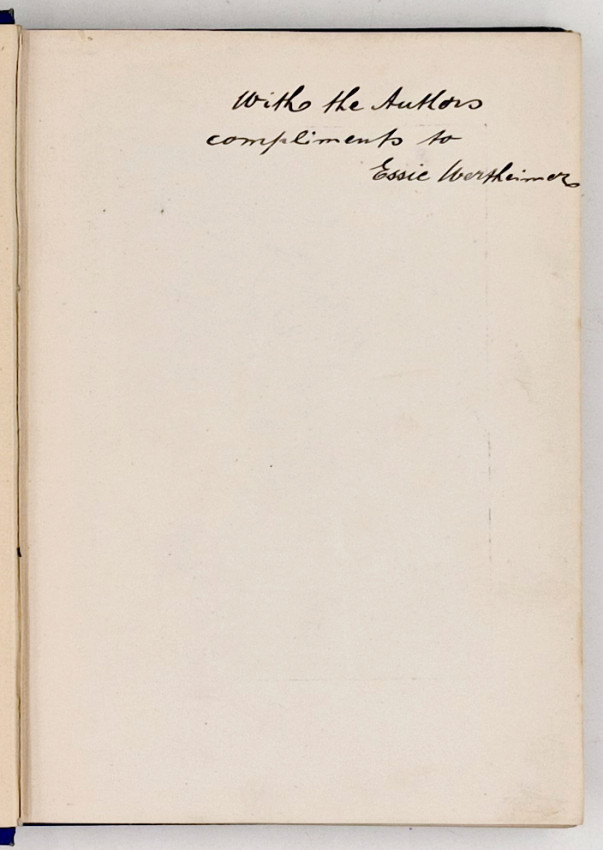 With the Authors
compliments to
Essie Wertheimer